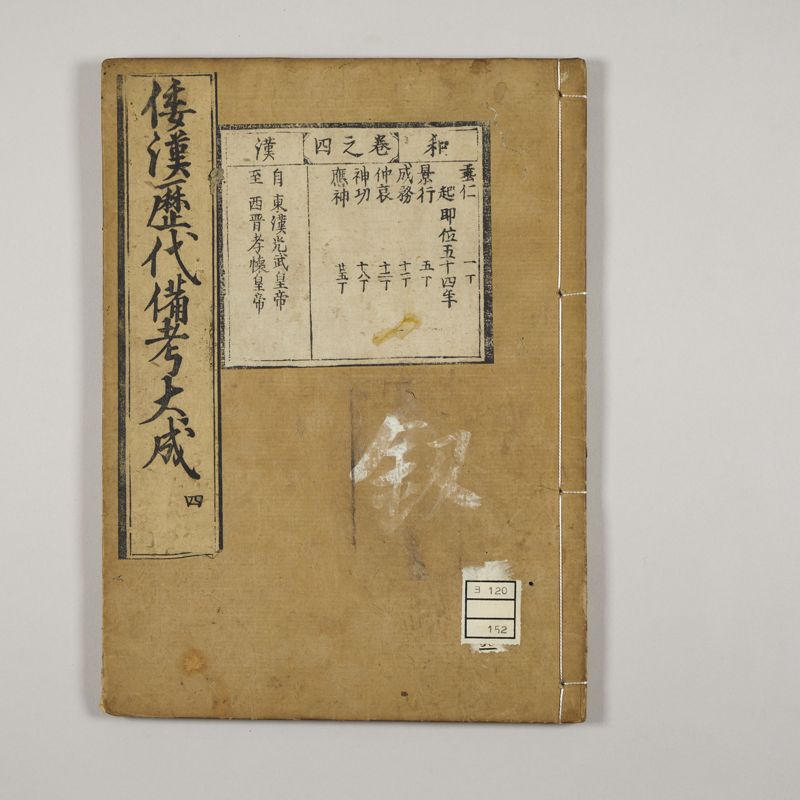 倭漢歴代備考大成 四
和
卷之四
漢
垂仁 一丁
起即位五十四年
景行 五丁
成務 十二丁
仲哀 十三丁
神功 十八丁
應神 廿五丁
自東漢光武皇帝
至西晋孝懷皇帝
ヨ 120
152